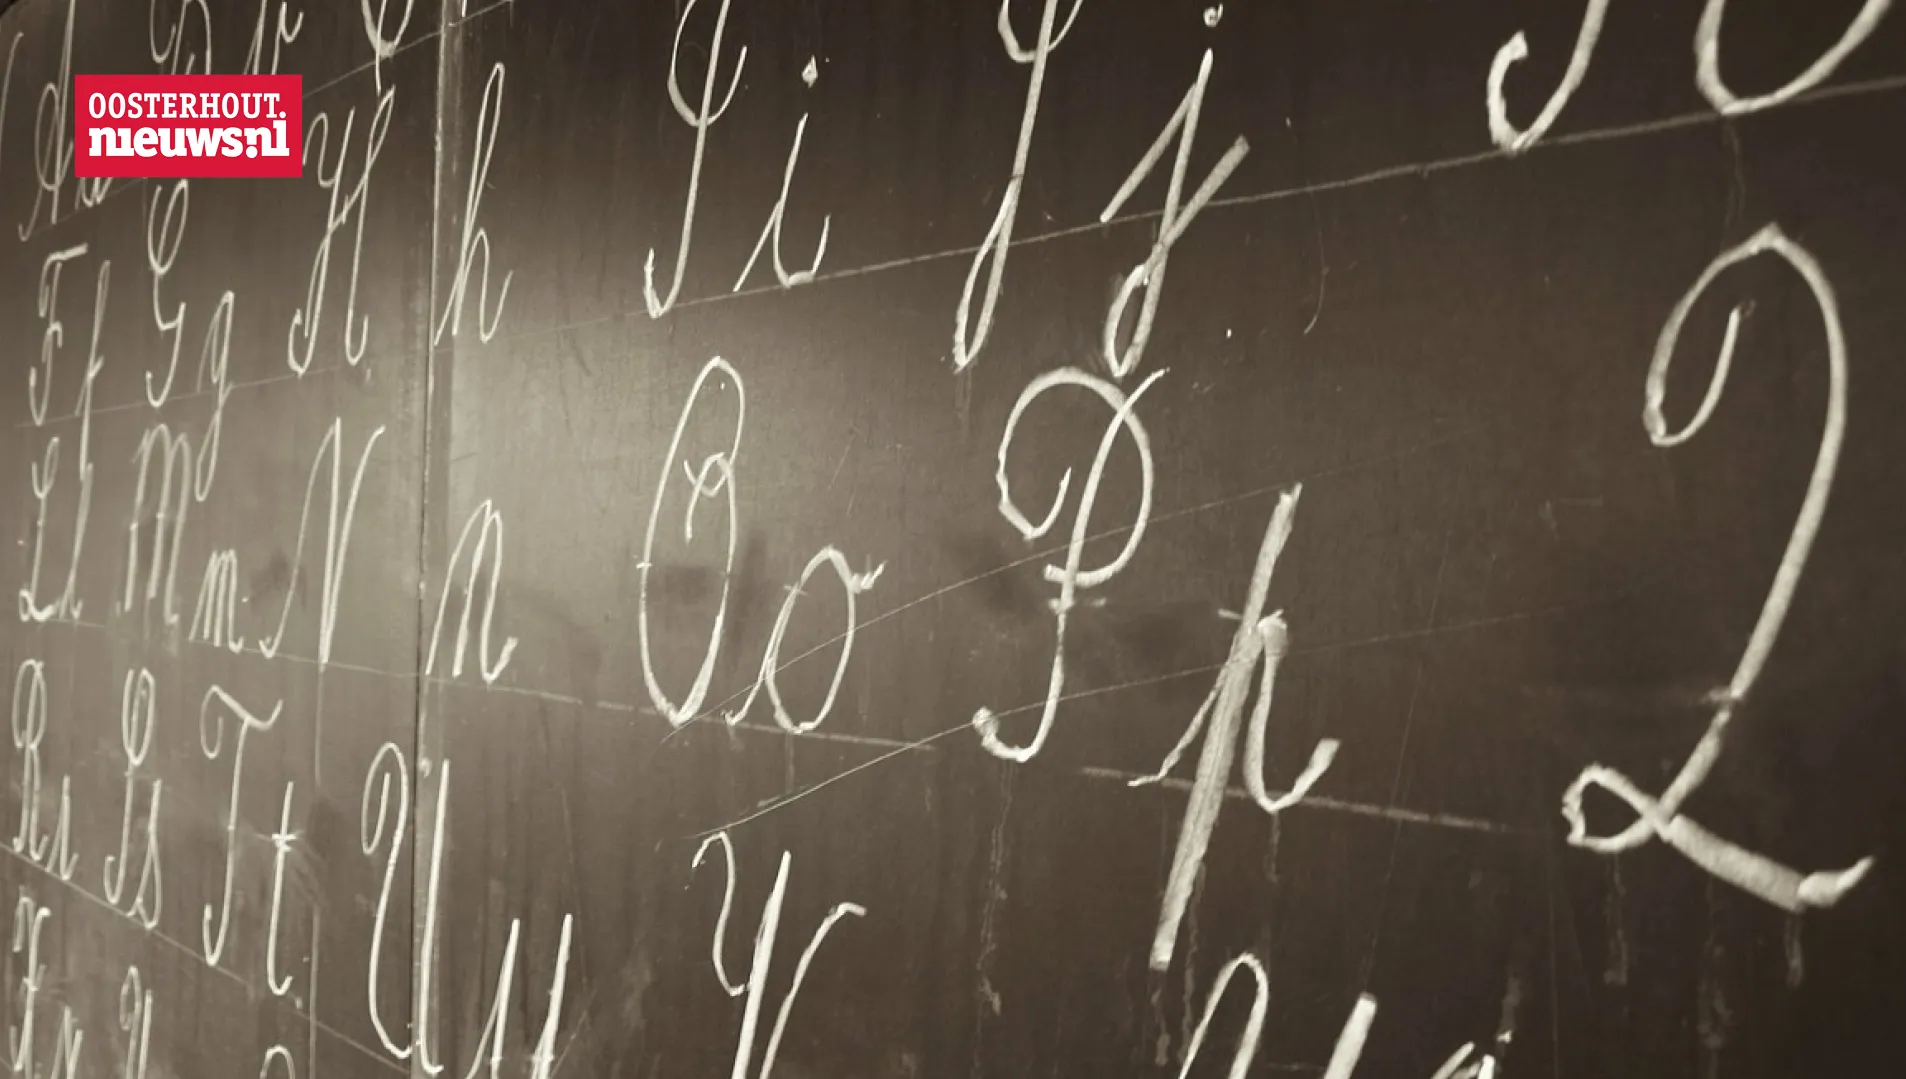 OOSTERHOUT.
nieuws.nl
A a
F f G g H h I i J j
L l M m N n O o P p Q
R r S s T t U u V